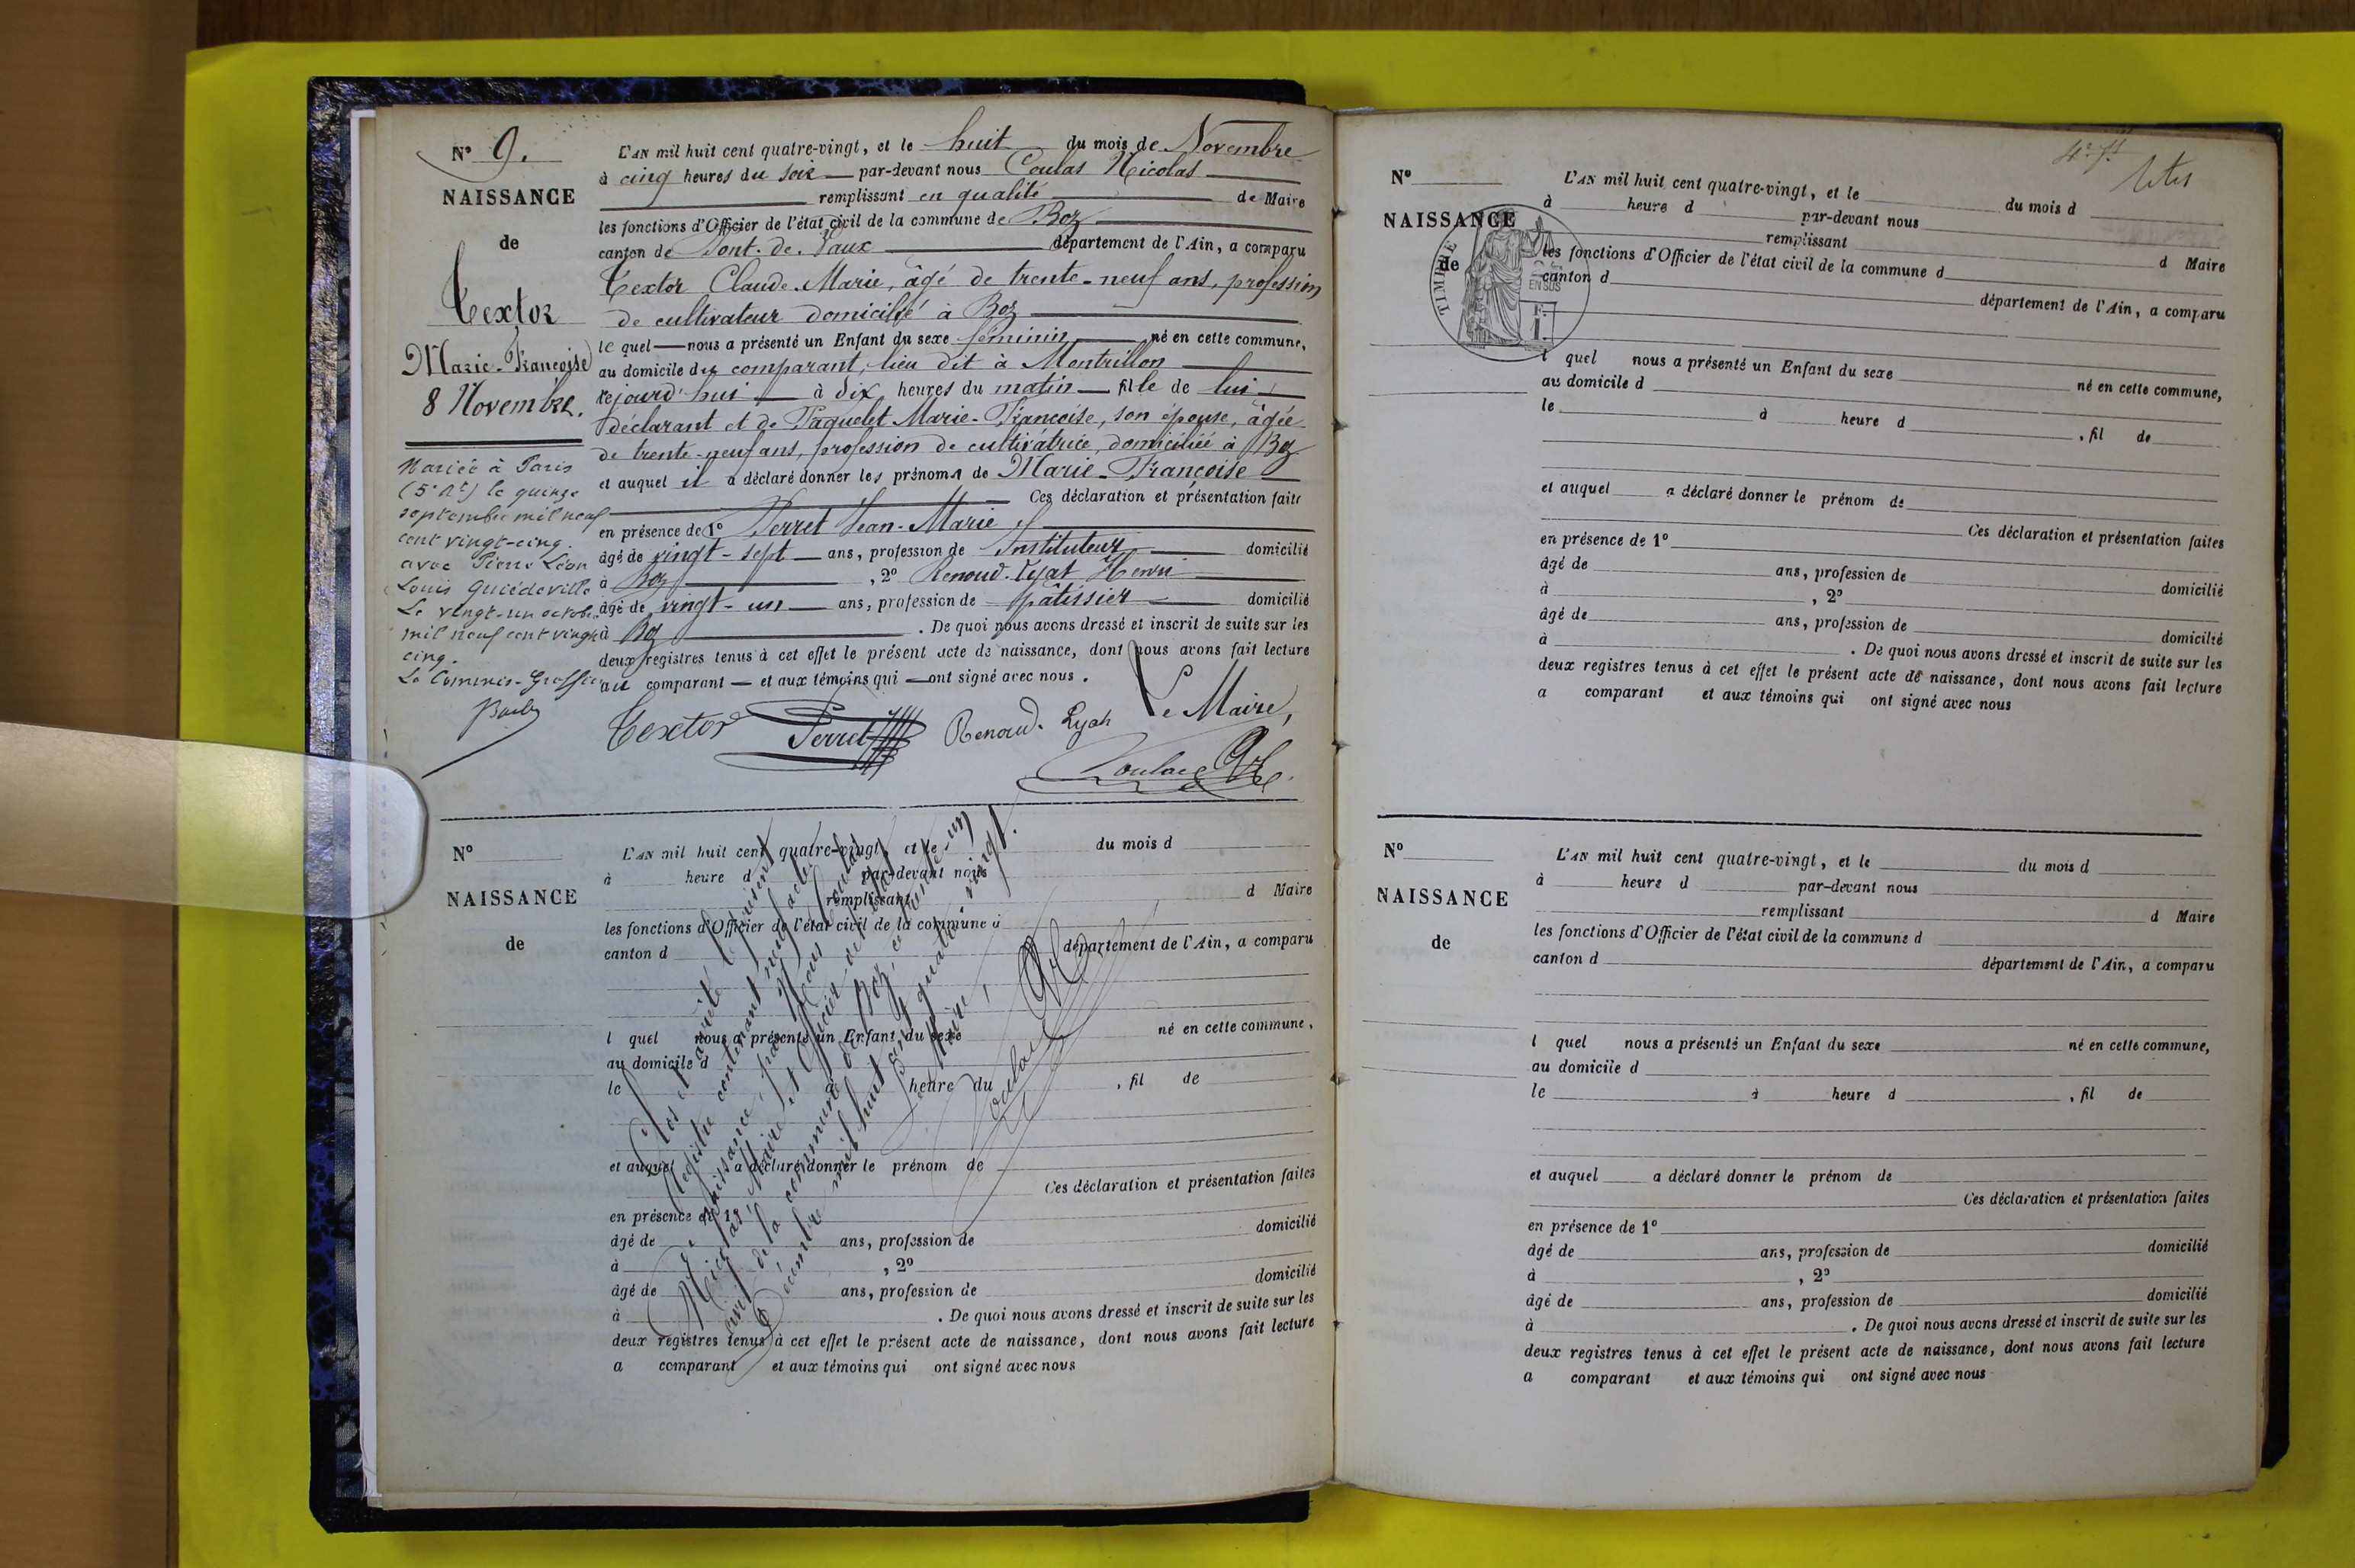 N° 9.
NAISSANCE
de
Textor
Marie-Françoise
8 Novembre.
Mariée à Paris
(5e Art) le quinze
septembre mil neuf
cent vingt-cinq.
avec Pierre Léon
Louis Quiédeville
Le vingt-un octobre
mil neuf cent vingt
cinq.
Le Commis-Greffier
L'AN mil huit cent quatre-vingt, et le huit du mois de Novembre
à cinq heures du soir par-devant nous Coulas Nicolas
remplissant en qualité de Maire
les fonctions d'Officier de l'état civil de la commune de Boz
canton de Pont-de-Vaux département de l'Ain, a comparu
Textor Claude-Marie, âgé de trente-neuf ans, profession
de cultivateur domicilié à Boz
le quel nous a présenté un Enfant du sexe féminin né en cette commune,
au domicile du comparant, lieu dit à Montrillon
cejourd'hui à dix heures du matin fille de lui
déclarant et de Paquelet Marie-Françoise, son épouse, âgée
de trente-neuf ans, profession de cultivatrice, domiciliée à Boz
et auquel il a déclaré donner les prénoms de Marie-Françoise
Ces déclaration et présentation faites
en présence de 1° Perret Jean-Marie
âgé de vingt-sept ans, profession de Instituteur domicilié
à Boz, 2° Renoud-Lyat Henri
âgé de vingt-un ans, profession de pâtissier domicilié
à Boz. De quoi nous avons dressé et inscrit de suite sur les
deux registres tenus à cet effet le présent acte de naissance, dont nous avons fait lecture
au comparant et aux témoins qui ont signé avec nous.
Le Maire,
Textor Perret Renoud-Lyat
Coulas
N°
NAISSANCE
de
L'AN mil huit cent quatre-vingt, et le du mois d
à heure d par-devant nous
remplissant d Maire
les fonctions d'Officier de l'état civil de la commune d
canton d département de l'Ain, a comparu
l quel nous a présenté un Enfant du sexe né en cette commune,
au domicile d
le à heure du , fil de
et auquel a déclaré donner le prénom de
Ces déclaration et présentation faites
en présence de 1°
âgé de ans, profession de domicilié
à , 2°
âgé de ans, profession de domicilié
à . De quoi nous avons dressé et inscrit de suite sur les
deux registres tenus à cet effet le présent acte de naissance, dont nous avons fait lecture
a comparant et aux témoins qui ont signé avec nous
Clos et arrêté le présent
registre contenant neuf actes
de naissance, par Nous Coulas
Nicolas, Maire et Officier de l'état
civil de la commune de Boz, ce trente-un
Décembre mil huit cent quatre-vingt.
Le Maire,
Coulas
N°
NAISSANCE
de
TIMBRE
L'AN mil huit cent quatre-vingt, et le du mois d
à heure d par-devant nous
remplissant d Maire
les fonctions d'Officier de l'état civil de la commune d
canton d département de l'Ain, a comparu
l quel nous a présenté un Enfant du sexe né en cette commune,
au domicile d
le à heure d , fil de
et auquel a déclaré donner le prénom de
Ces déclaration et présentation faites
en présence de 1°
âgé de ans, profession de domicilié
à , 2°
âgé de ans, profession de domicilié
à . De quoi nous avons dressé et inscrit de suite sur les
deux registres tenus à cet effet le présent acte de naissance, dont nous avons fait lecture
a comparant et aux témoins qui ont signé avec nous
N°
NAISSANCE
de
L'AN mil huit cent quatre-vingt, et le du mois d
à heure d par-devant nous
remplissant d Maire
les fonctions d'Officier de l'état civil de la commune d
canton d département de l'Ain, a comparu
l quel nous a présenté un Enfant du sexe né en cette commune,
au domicile d
le à heure d , fil de
et auquel a déclaré donner le prénom de
Ces déclaration et présentation faites
en présence de 1°
âgé de ans, profession de domicilié
à , 2°
âgé de ans, profession de domicilié
à . De quoi nous avons dressé et inscrit de suite sur les
deux registres tenus à cet effet le présent acte de naissance, dont nous avons fait lecture
a comparant et aux témoins qui ont signé avec nous